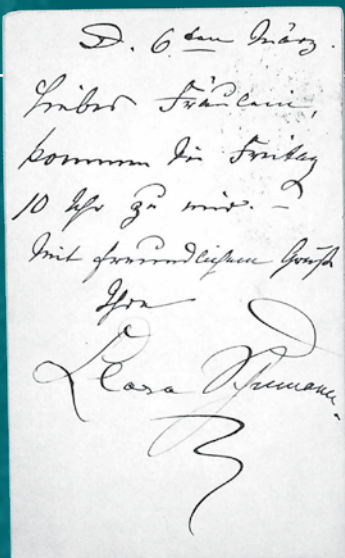 D. 6ten März.
Liebes Fräulein,
kommen Sie Freitag
10 Uhr zu mir. –
Mit freundlichem Gruß
Ihre
Clara Schumann.